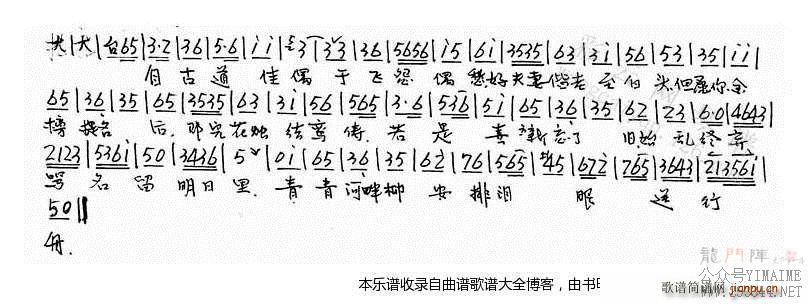 大 大 | 台 65 | 3·2 | 36 | 5·6 | i i | 3 | 33 | 36 | 5656 | i5 | 6i | 3535 | 63 | 3i | 56 | 53 | 35 | i i |
自古道 佳偶 于飞 偶 好夫妻偕老 至白头 但愿你金
65 | 36 | 35 | 65 | 3535 | 63 | 3i | 56 | 565 | 3·6 | 536 | 5i | 65 | 36 | 35 | 62 | 23 | 6·0 | 4643 |
榜提名 后, 花烛 结鸾俦, 若是 喜新忘了 旧 始乱终弃
2123 | 536i | 50 | 3436 | 5 | 0i | 65 | 36 | 35 | 62 | 76 | 565 | 45 | 672 | 765 | 3643 | 213561 |
骂名留 明日里, 青青河畔柳 安排泪 眼 送行
50 ‖
舟.
龍門陣
公众号YIMAIME
本乐谱收录自曲谱歌谱大全博客，由书
歌谱简谱网 jianpu.cn